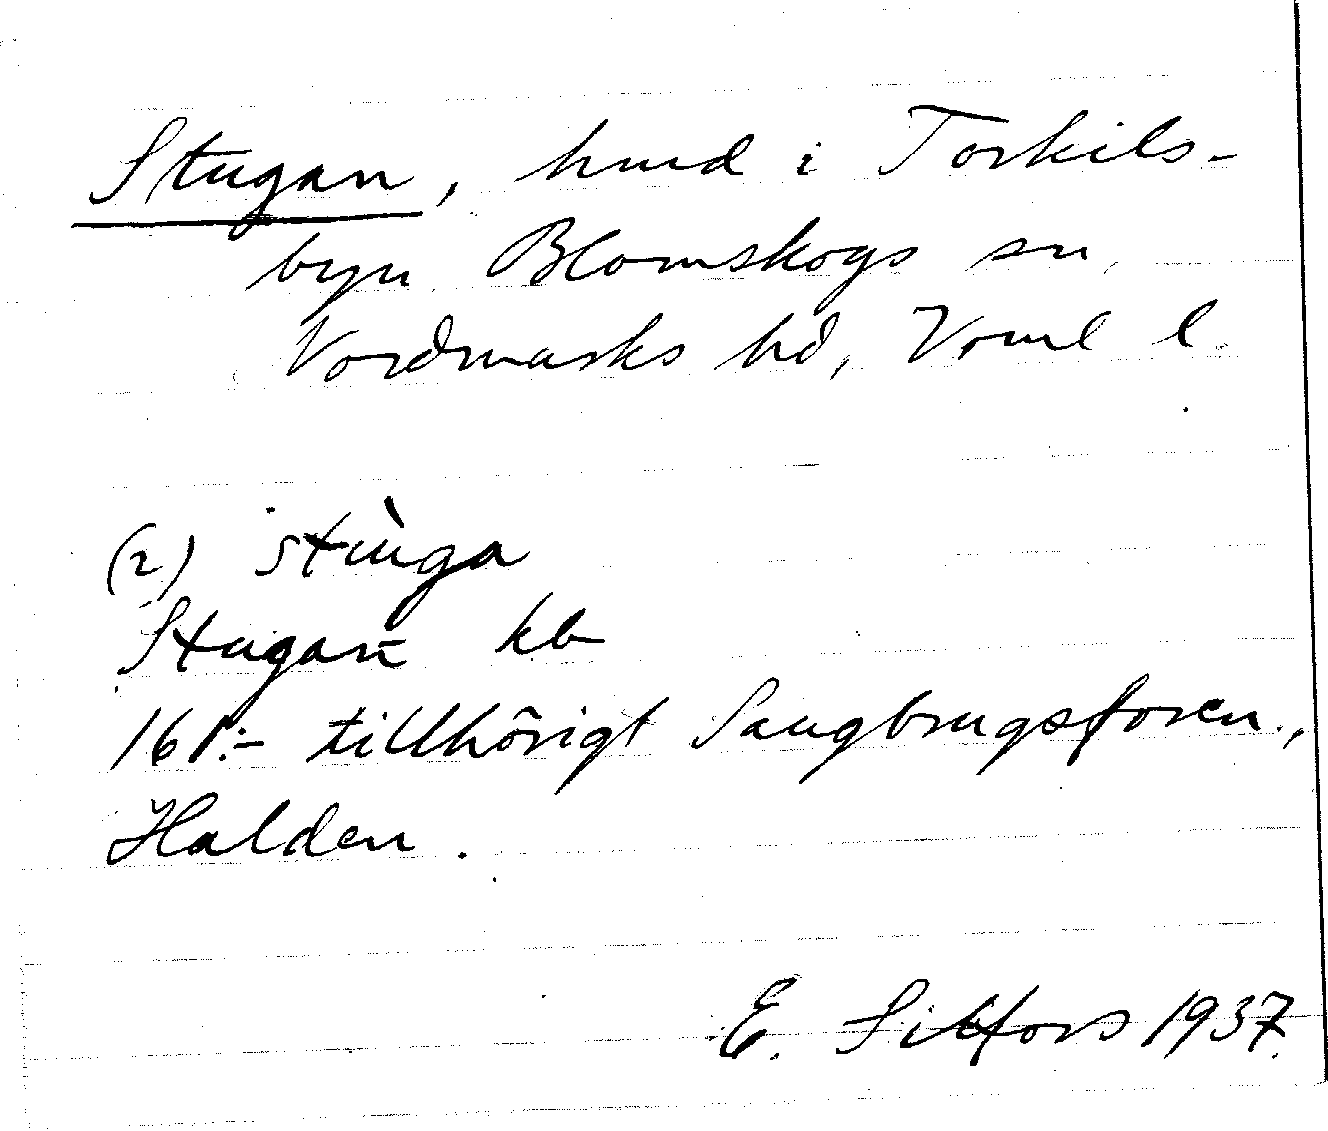 Stugan, hmd i Torkils-
byn Blomskogs sn,
Nordmarks hd, Vrml l.
(2) stùga
Stugan kb
161:- tillhörigt Saugbrugsforen.,
Halden.
E. 1937.